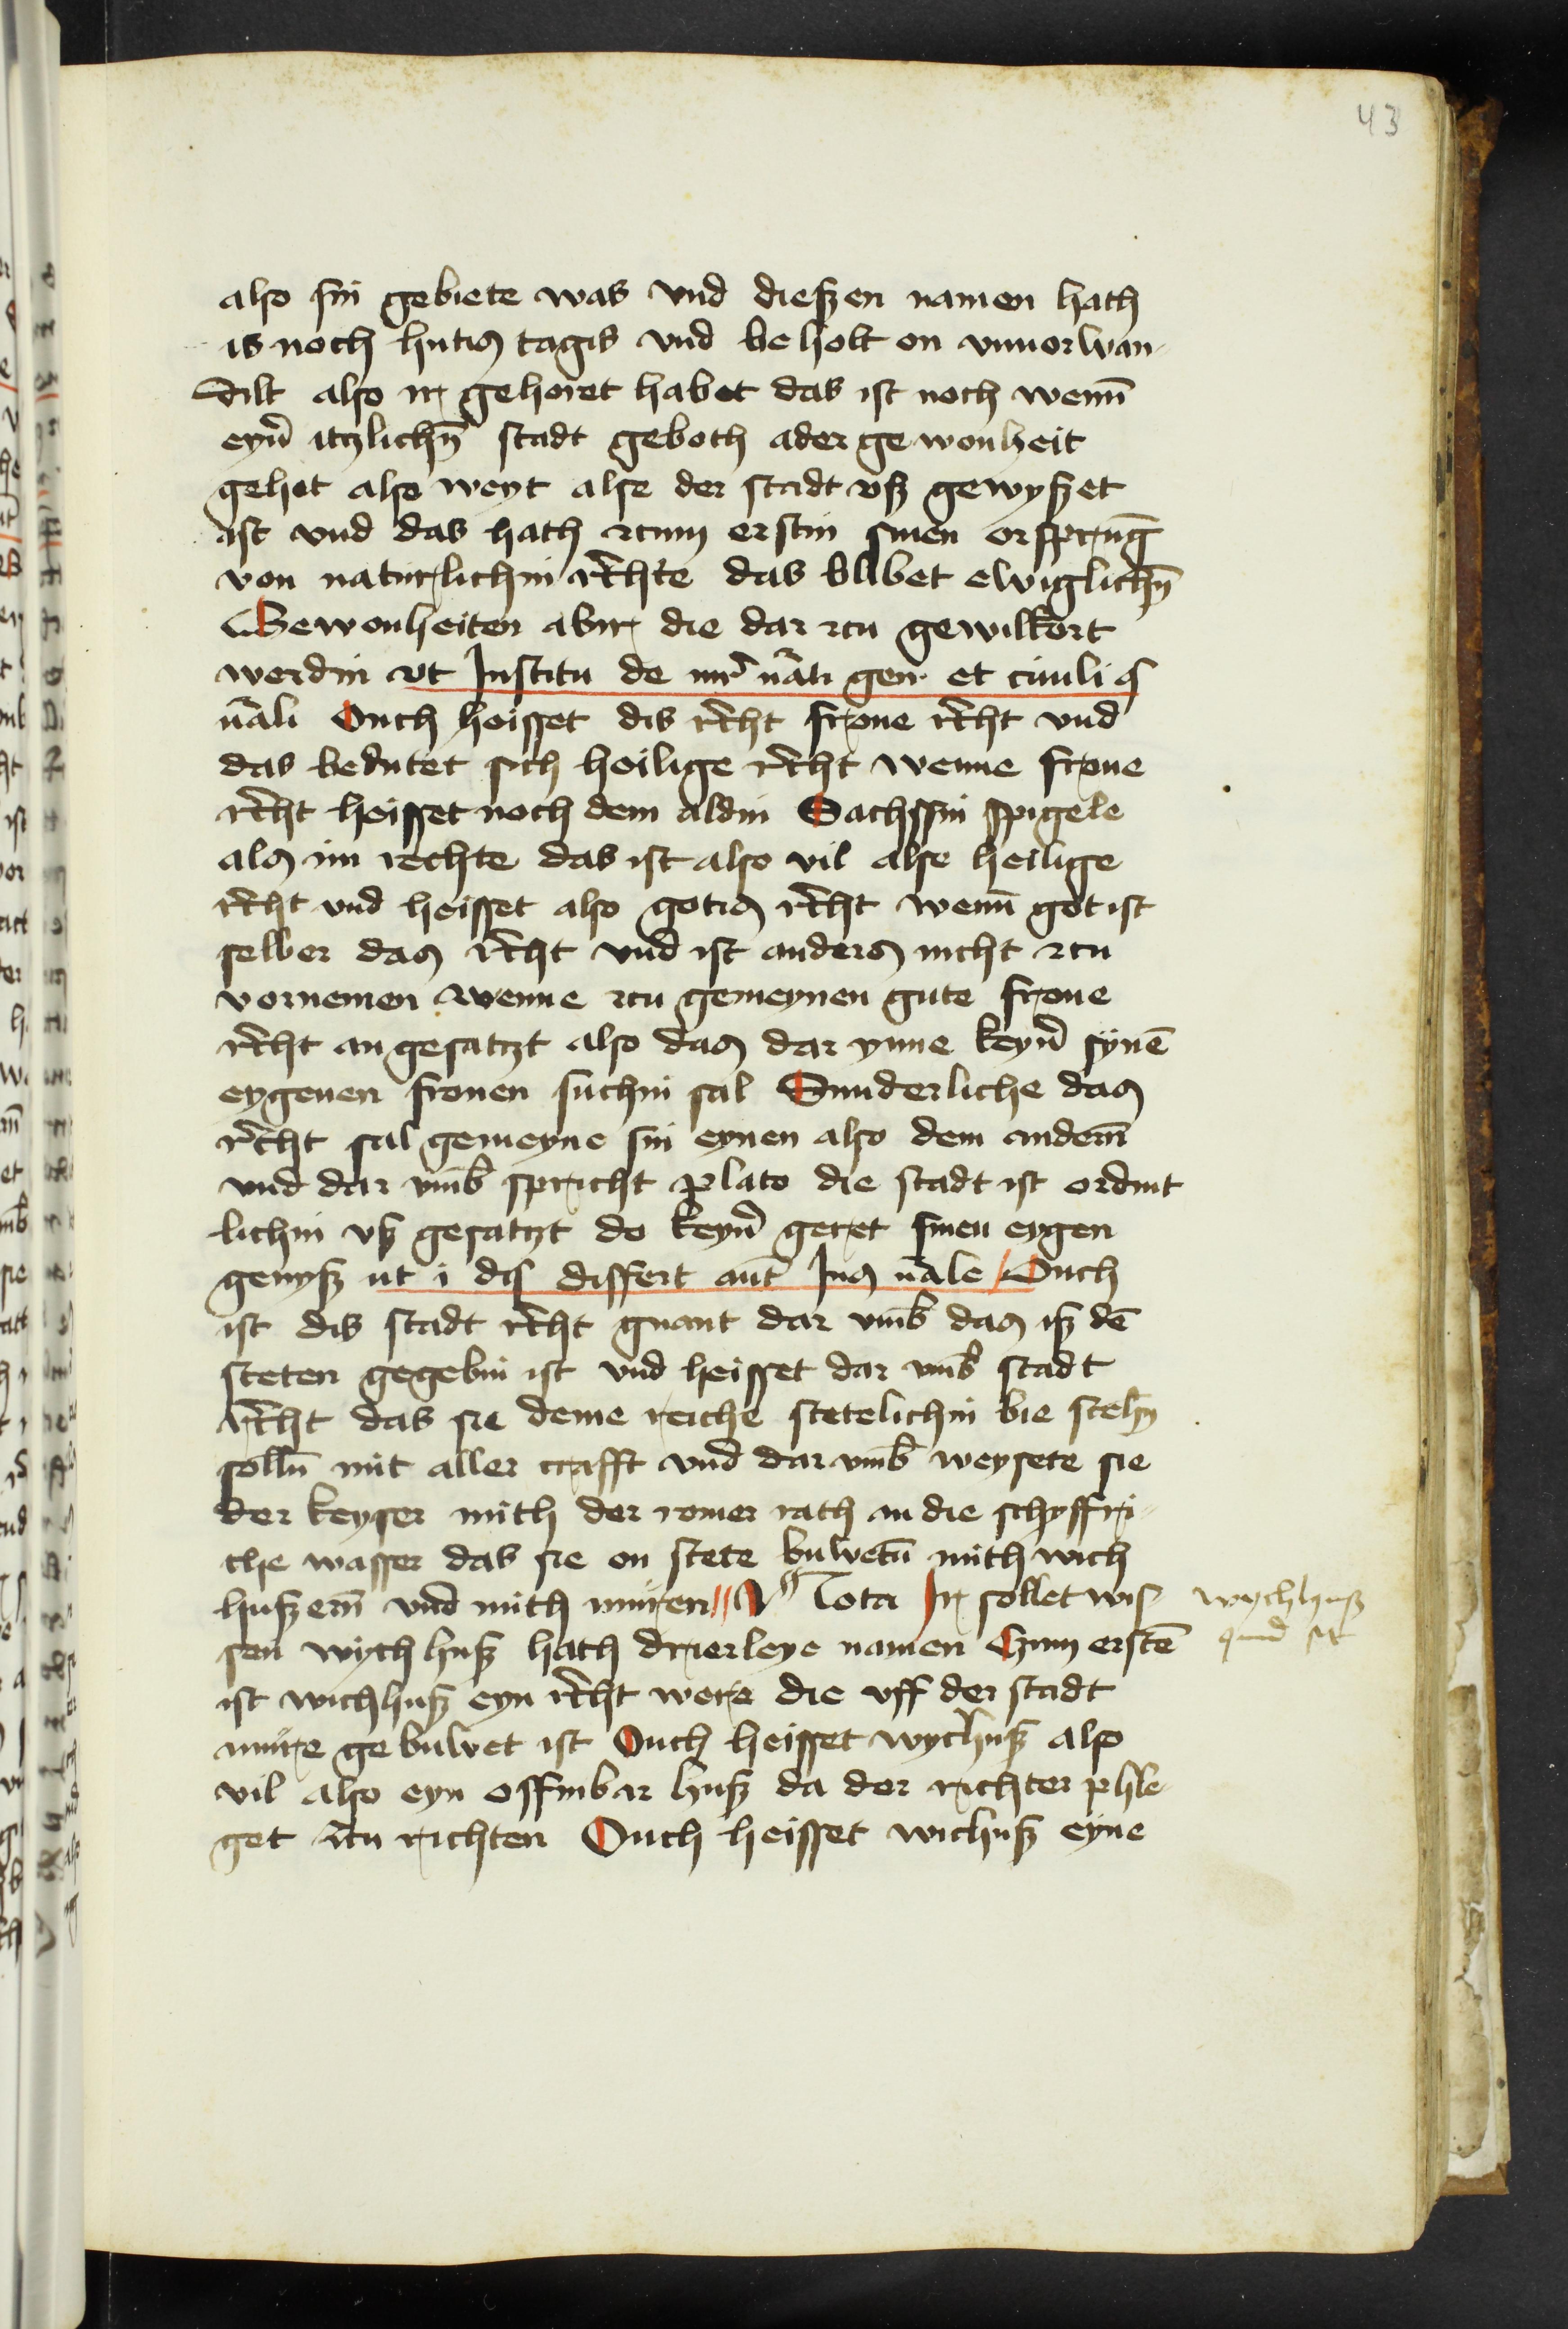 43
also sin gebiete was vnd dießen namen hath
is noch hutis tagis vnd beholt on vnuorwan-
dilt also ir gehoret habet das ist noch wenn̄
eyn̄ itzlichn̄ stadt geboth ader gewonheit
gehet also weyt alse der stadt vß gewyßet
ist vnd das hath zcum erstin sinen orsprūg
von naturlichin rc̄hte das blibet ewiglichn̄
Gewonheiten abir die dar zcu gewilkort
werdin vt Institu de iur̄ nāti gen et ciuli §
nāli Ouch heisset dis rc̄ht frone rc̄ht vnd
das bedutet sich heilige rc̄ht wenne frone
rc̄ht heisset noch dem aldin Sachssin spigele
als im rechte das ist also vil alse heilige
rc̄ht vnd heisset also gotis rc̄ht wenn̄ got ist
selber das rc̄ht vnd ist anders nicht zcu
vornemen wenne zcu gemeynen gute frone
rc̄ht an gesatzt also das dar ynne keyn̄ synē
eygenen fromen suchin sal Sunderliche das
rc̄ht sal gemeyne sin eynen also dem andern̄
vnd dar vmb̄ spricht plato die stadt ist ordint
lichin vß gesatzt do keyn̄ geret sinen eygen
genyß ut i dis differt aut̄ Jus nāle / Ouch
ist dis stadt rc̄ht gnant dar vmb̄ das iß dē
steten gegebin ist vnd heisset dar vmb̄ stadt
rc̄ht das sie deme reiche stetelichin bie stehn̄
solln̄ mit aller crafft vnd dar vmb̄ weysete sie
der keyser mith der romer rath an die schyffri-
che wasser das sie on stete buwetn̄ mith wich
hußern̄ vnd mith muren // Nota Ir sollet wis-
sen wych huß hath drierleye namen Czum erstē
ist wichhuß eyn rc̄ht were die vff der stadt
mure gebuwet ist Ouch heisset wychuß also
vil also eyn offinbar huß da der richter phle-
get zcu richten Ouch heisset wichuß eyne
wychhuß
quid sit